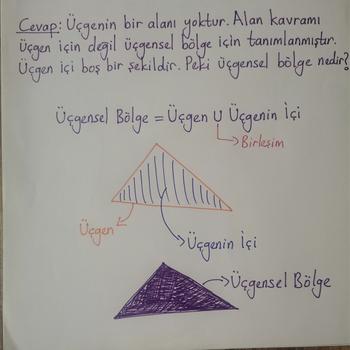 Cevap: Üçgenin bir alanı yoktur. Alan kavramı
Üçgen için değil üçgensel bölge için tanımlanmıştır.
Üçgen içi boş bir şekildir. Peki üçgensel bölge nedir?
Üçgensel Bölge = Üçgen U Üçgenin İçi
Birleşim
Üçgen
Üçgenin İçi
Üçgensel Bölge